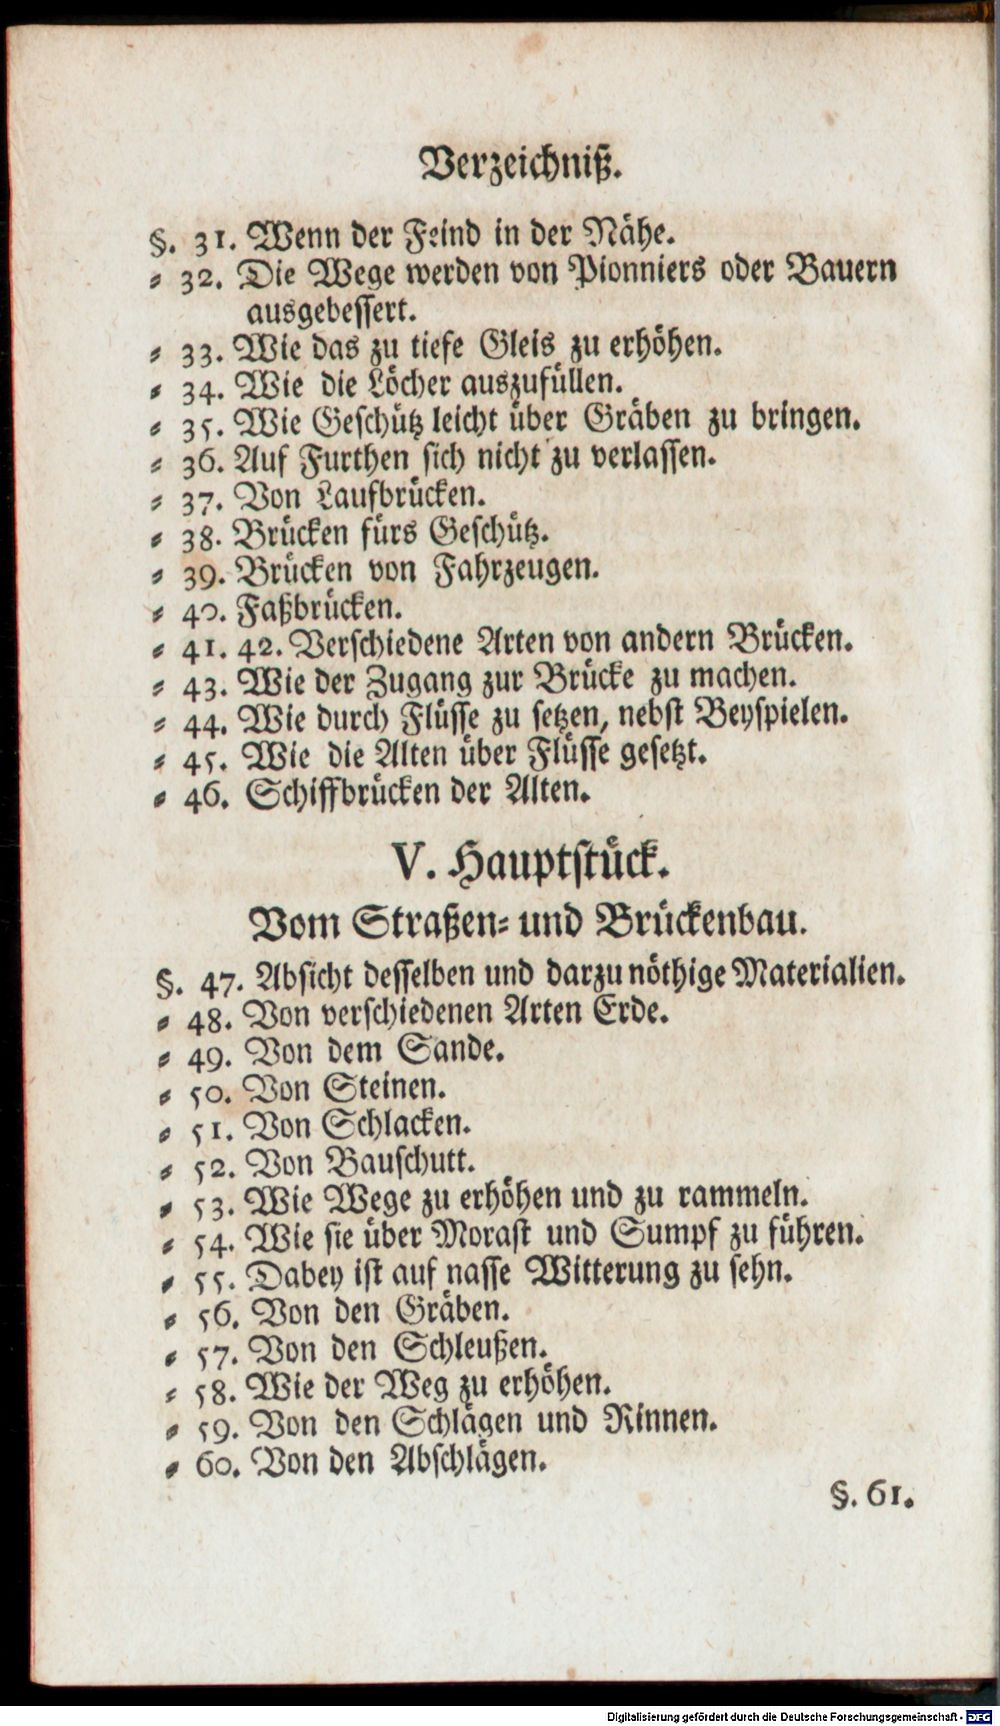 Verzeichniß.
§. 31. Wenn der Feind in der Nähe.
⸗ 32. Die Wege werden von Pionniers oder Bauern
ausgebessert.
⸗ 33. Wie das zu tiefe Gleis zu erhöhen.
⸗ 34. Wie die Löcher auszufüllen.
⸗ 35. Wie Geschütz leicht über Gräben zu bringen.
⸗ 36. Auf Furthen sich nicht zu verlassen.
⸗ 37. Von Laufbrücken.
⸗ 38. Brücken fürs Geschütz.
⸗ 39. Brücken von Fahrzeugen.
⸗ 40. Faßbrücken.
⸗ 41. 42. Verschiedene Arten von andern Brücken.
⸗ 43. Wie der Zugang zur Brücke zu machen.
⸗ 44. Wie durch Flüsse zu setzen, nebst Beyspielen.
⸗ 45. Wie die Alten über Flüsse gesetzt.
⸗ 46. Schiffbrücken der Alten.
V. Hauptstück.
Vom Straßen⸗ und Brückenbau.
§. 47. Absicht desselben und darzu nöthige Materialien.
⸗ 48. Von verschiedenen Arten Erde.
⸗ 49. Von dem Sande.
⸗ 50. Von Steinen.
⸗ 51. Von Schlacken.
⸗ 52. Von Bauschutt.
⸗ 53. Wie Wege zu erhöhen und zu rammeln.
⸗ 54. Wie sie über Morast und Sumpf zu führen.
⸗ 55. Dabey ist auf nasse Witterung zu sehn.
⸗ 56. Von den Gräben.
⸗ 57. Von den Schleußen.
⸗ 58. Wie der Weg zu erhöhen.
⸗ 59. Von den Schlägen und Rinnen.
⸗ 60. Von den Abschlägen.
§. 61.
Digitalisierung gefördert durch die Deutsche Forschungsgemeinschaft - DFG